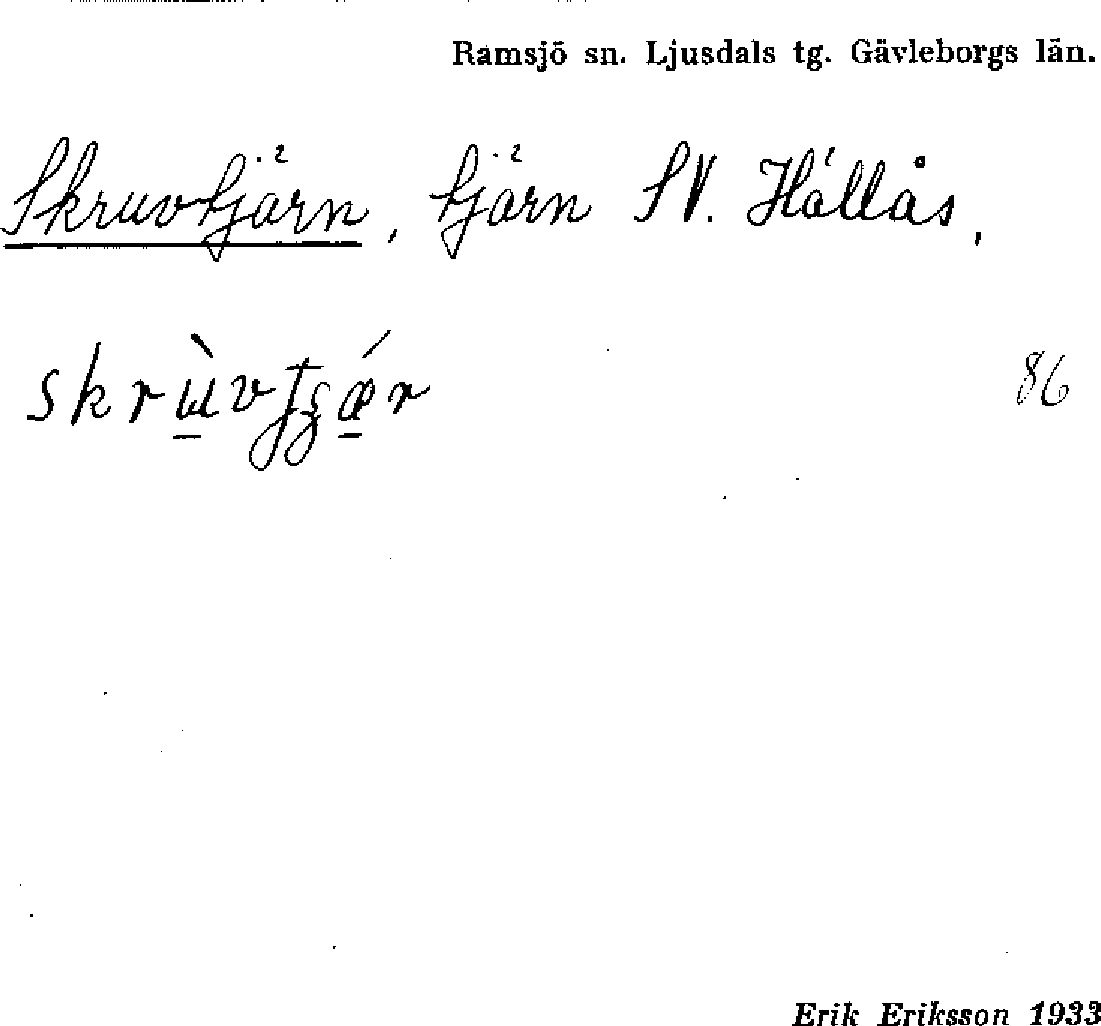 Ramsjö sn. Ljusdals tg. Gävleborgs län.
Skruvtjärn, tjärn SV. Hållås,
skrùvtʂǽr 86
Erik Eriksson 1933